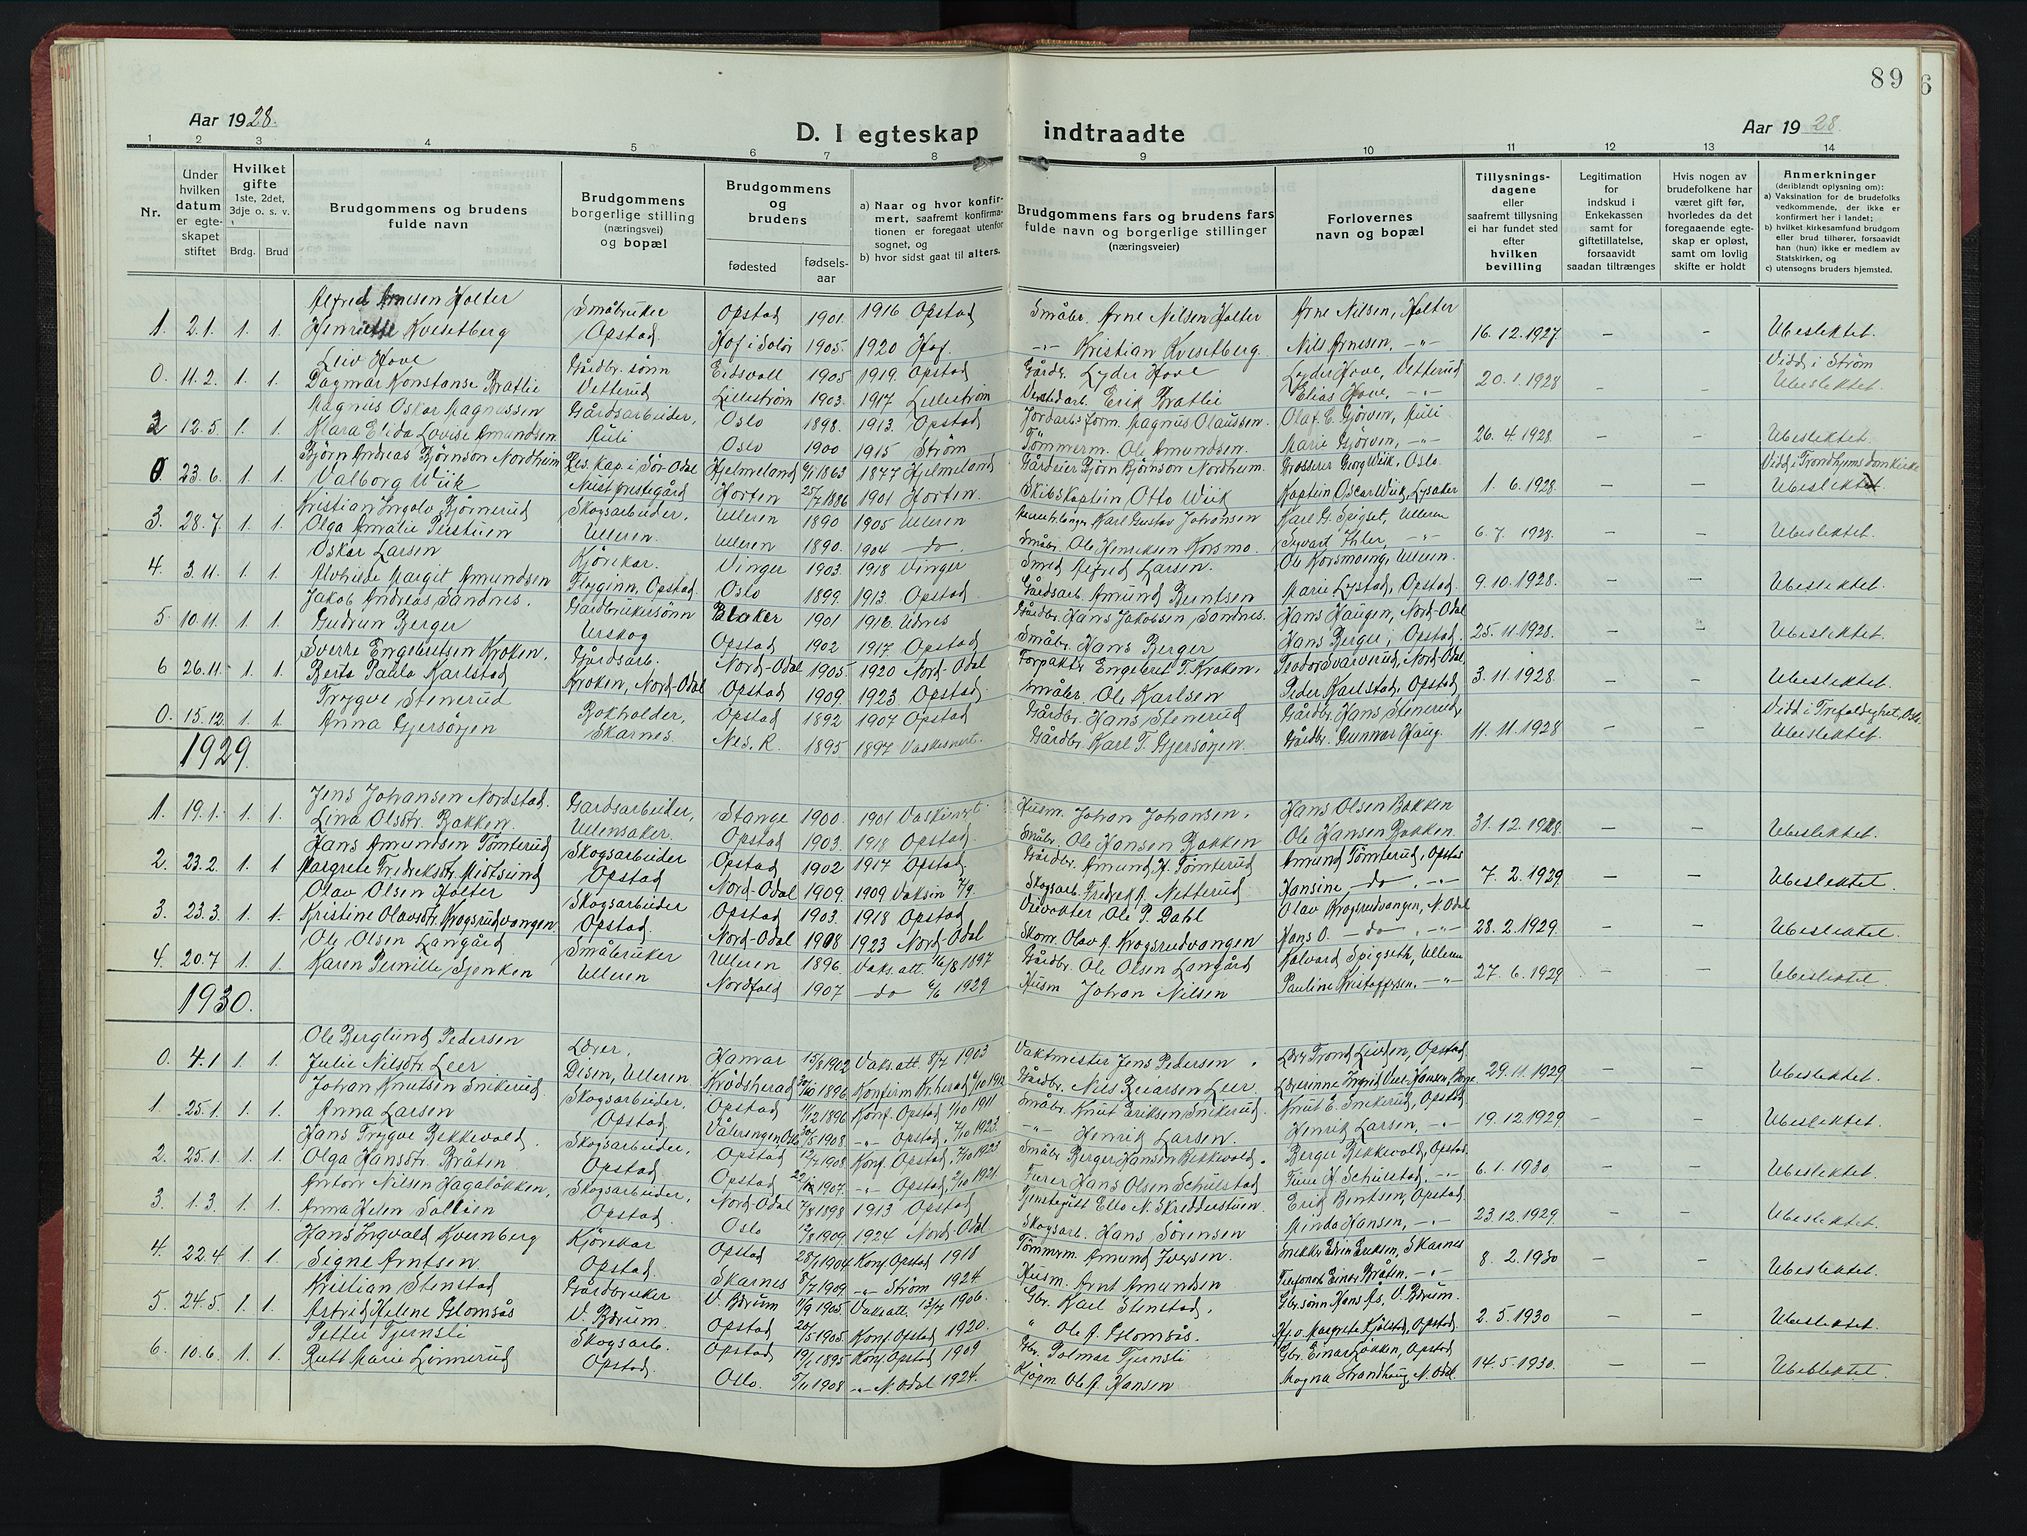 89
Aar 1928.
D. I egteskap indtraadte
Aar 1928.
1 2 3 4 5 6 7 8 9 10 11 12 13 14
Nr.
Under hvilken datum er egteskapet stiftet
Hvilket gifte 1ste, 2det, 3dje o. s. v.
Brdg. Brud
Brudgommens og brudens fulde navn
Brudgommens borgerlige stilling (næringsvei) og bopæl
Brudgommens og brudens
fødested
fødselsaar
a) Naar og hvor konfirmert, saafremt konfirmationen er foregaat utenfor sognet, og
b) hvor sidst gaat til alters.
Brudgommens fars og brudens fars fulde navn og borgerlige stillinger (næringsveier)
Forlovernes navn og bopæl
Tillysningsdagene eller saafremt tillysning ei har fundet sted efter hvilken bevilling
Legitimation for indskud i Enkekassen samt for giftetillatelse, forsaavidt saadan tiltrænges
Hvis nogen av brudefolkene har været gift før, hvorledes da det foregaaende egteskap er opløst, samt om lovlig skifte er holdt
Anmerkninger (deriblandt oplysning om):
a) Vaksination for de brudefolks vedkommende, der ikke er konfirmert her i landet;
b) hvilket kirkesamfund brudgom eller brud tilhører, forsaavidt han (hun) ikke er medlem av Statskirken, og
c) utensogns bruders hjemsted.
Alfred Arnesen Holter Småbruker Opstad 1901. 1916 Opstad Småbr. Arne Nilsen Holter Arne Nilsen, Holter
1. 2.1. 1. 1. Henriette Kvesetberg Opstad. Hof i Solør 1905. 1920 Hof. -"- Kristian Kvesetberg. Nils Arnesen, -"- 16.12.1927. – – Ubeslektet.
Leiv Hove Gårdbr. sønn Eidsvoll 1905 1919. Opstad Gårdbr. Lyder Hove Lyder Hove, Vetterud Vidd i Strøm
0. 11.2. 1. 1. Dagmar Konstanse Bratlie Vetterud Lillestrøm 1903. 1917 Lillestrøm Verkstedarb. Erik Bratlie Elias Hove, -"- 20.1.1928 – – Ubeslektet.
Magnus Oskar Magnussen Gårdsarbeider, Oslo 1898. 1913. Opstad Jordarb.form. Magnus Olaussen. Olaf E. Gjørven, Auli
2 12.5. 1. 1. Klara Elida Lovise Amundsen Auli Oslo 1900 1915 Strøm Tømmerm. Ole Amundsen. Marie Gjørven, -"- 26.4.1928. – – Ubeslektet.
Bjørn Andreas Bjørnson Nordheim Res. kap. i Sør-Odal Hjelmeland 1863 1877 Hjelmeland Gårdeier Bjørn Bjørnson Nordheim. Grosserer Georg Wiik, Oslo. Vidd i Trondhjems domkirke
0 23.6. 1. 1. Valborg Wiik Horten 25/7 1886 1901 Horten. Skibskaptein Otto Wiik Kaptein Oscar Wiik, Lysaker 1.6.1928. – – Ubeslektet
Kristian Ingolv Bjørnerud Skogsarbeider, Ulleren 1890 1905 Ulleren Karl Gustav Johansen Karl G. Spigset, Ulleren
3. 28.7. 1. 1. Olga Amalie Ulleren. Ulleren 1890. 1904 -do- Småbr. Ole Henriksen Korsmo. Syvart Ihler, -"- 6.7 1928. – – Ubeslektet.
Oskar Larsen Kjørekar. Vinger 1903. 1918 Vinger Smed Alfred Larsen. Ole Korsmoeng, Ulleren.
4. 3.11. 1. 1. Alvhilde Margit Amundsen Tryginn, Opstad Oslo 1899. 1913. Opstad Gårdsarb. Amund Berntsen Marie Lystad, Opstad. 9.10.1928. – – Ubeslektet.
Jakob Andreas Sandnes. Gårdbrukersønn Blaker 1901 1916. Udnes Gårdbr. Hans Jakobsen Sandnes. Hans Haugen, Nord-Odal
5. 10.11. 1. 1. Gudrun Berger Urskog Opstad 1902 1917 Opstad Småbr. Hans Berger Hans Berger, Opstad. 25.11.1928. – – Ubeslektet.
Sverre Engebretsen Kroken. Gårdsarb. Nord-Odal 1905 1920 Nord-Odal Forpakter Engebret T. Kroken, Teodor Varverud, Nord-Odal
6 26.11. 1. 1. Berta Paula Karlstad Kroken, Nord-Odal Opstad 1909. 1923 Opstad. Småbr. Ole Karlsen Peder Karlstad, Opstad. 3.11.1928. – – Ubeslektet.
Trygve Stenerud Bokholder, Opstad 1892 1907 Opstad Gårdbr. Hans Stenerud Gårdbr. Hans Stenerud Vidd i Trefoldighet, Oslo
0. 15.12. 1. 1. Anna Gjersøyen Skarnes. Nes, R. 1895 1897 Vaksinert. Gårdbr. Karl T. Gjersøyen. Gårdbr. Gunnar Haug. 11.11.1928 – – Ubeslektet.
1929.
Jens Johansen Nordstad. Gardsarbeider, Stange 1900. 1901 Vaksinert. Husm. Johan Johansen. Hans Olsen Bakken
1. 19.1. 1. 1. Lina Olsdtr. Bakken. Ullensaker. Opstad 1903. 1918 Opstad. Småbr. Ole Hansen Bakken Ole Hansen Bakken 31.12.1928. – – Ubeslektet.
Hans Amundsen Tømterud Skogsarbeider Opstad 1902 1917 Opstad. Gårdbr. Amund H. Tømterud Amund Tømterud, Opstad
2. 23.2. 1. 1. Margrete Fredriksdtr. Midtsund Opstad Nord-Odal 1909. 1909 Vaksin 7/9. Skogsarb. Fredrik A. Netterud Hansine -do-, -"- 7.2.1929. – – Ubeslektet.
Olav Olsen Holter Skogsarbeider Opstad 1903. 1918 Opstad Ole P. Dahl Olav Krogsrudvangen, N. Odal
3. 23.3. 1. 1. Kristine Olavsdtr. Krogsrudvangen. Opstad. Nord-Odal 1908 1923 Nord-Odal Skom. Olav A. Krogsrudvangen Hans O. -do-, -"- 28.2.1929. – – Ubeslektet.
Ole Olsen Langård Småbruker Ulleren 1896. Vaks.att. 16/8 1897 Gårdbr. Ole Olsen Langård Halvard Spigseth, Ulleren
4. 20.7 1. 1. Karen Pernille Sjenken Ulleren. Nordfold 1907 -do- 6/6 1929 Husm Johan Nilsen Pauline Kristoffersen, -"- 27.6.1929 – – Ubeslektet.
1930.
Ole Berglund Pedersen Lærer, Hamar 15/8 1902 Vaks.att. 8/7 1903 Vaktmester Jens Pedersen. Lærer Trond Liodden, Opstad
0. 4.1 1. 1. Julie Nilsdtr. Leer Disen, Ulleren Krødsherad 30/10 1896 Konfirm. Kr.herad 6/10 1912 Gårdbr. Nils Reiarsen Leer Lærerinne Ingrid Vier-Hansen, 29.11.1929 – – Ubeslektet.
Johan Knutsen Snikerud Skogsarbeider, Opstad 1896 Konf. Opstad 1/10 1911 Småbr. Knut Eriksen Snikerud. Knut E. Snikerud, Opstad
1. 25.1. 1. 1. Anna Larsen Opstad Vålerengen Oslo 30/5 1908 -"- Opstad, 7/10 1923. -"- Henrik Larsen. Henrik Larsen, -"- 19.12.1929 – – Ubeslektet.
Hans Trygve Bekkevold. Skogsarbeider, Opstad 12/7 1908 Konf. Opstad, 7/10 1923 Småbr. Berger Hansen Bekkevold. Berger Bekkevold, Opstad
2. 25.1. 1. 1. Olga Hansdtr. Bråten Opstad. Opstad 1907. -"- Opstad, 2/10 1921. Furer Hans Olsen Schulstad Tine H Schulstad, -"- 6.1.1930 – – Ubeslektet.
Anton Nilsen Hagaløkken, Skogsarbeider, Nord-Odal 1/8 1898 1913 Opstad Tjenstegutt Ello N. Skredderstuen Erik Berntsen, Opstad
3. 1.3. 1. 1. Anna Helen Sollien Opstad. Oslo 12/8 1909 1924 Nord. Odal Skogsarb. Hans Sørensen Minda Hansen, -"- 23.12.1929. – – Ubeslektet.
Hans Ingvald Kvernberg Kjørekar Opstad 28/1 1904 Konf. Opstad 1918 Tømmerm. Amund Iversen. Snekker Edvin Eriksen, Skarnes
4. 22.4 1. 1. Signe Arntsen Opstad. Skarnes 8/7 1909 -"- Strøm 1924 Husm. Arnt Amundsen Einar Bråten, -"- 8.2.1930 – – Ubeslektet.
Kristian Stenstad Gårdbruker V. Bærum 11/9 1905 Vaks att. 13/7 1906. Gbr. Karl Stenstad, Gbr.sønn Hans Ås, V. Bærum.
5. 24.5. 1. 1. Astrid Helene Glomsås V. Bærum. Opstad 20/5 1905. Konf. Opstad 1920. " Ole A. Glomsås. Margrete Kjølstad, Opstad 2.5.1930 – – Ubeslektet.
Petter Tjernsli Skogsarb. Opstad 19/1 1895 Konf. Opstad 1909 Gbr. Palmar Tjernsli Gbr. Einar Løkken, Opstad
6. 10.6. 1. 1. Rutt Marie Linnerud Opstad. Oslo. 5/11 1908 -"- N. Odal 1924. Kjøpm Ole A. Hansen Magna Strandhaug, N. Odal 14.5.1930. – – Ubeslektet.